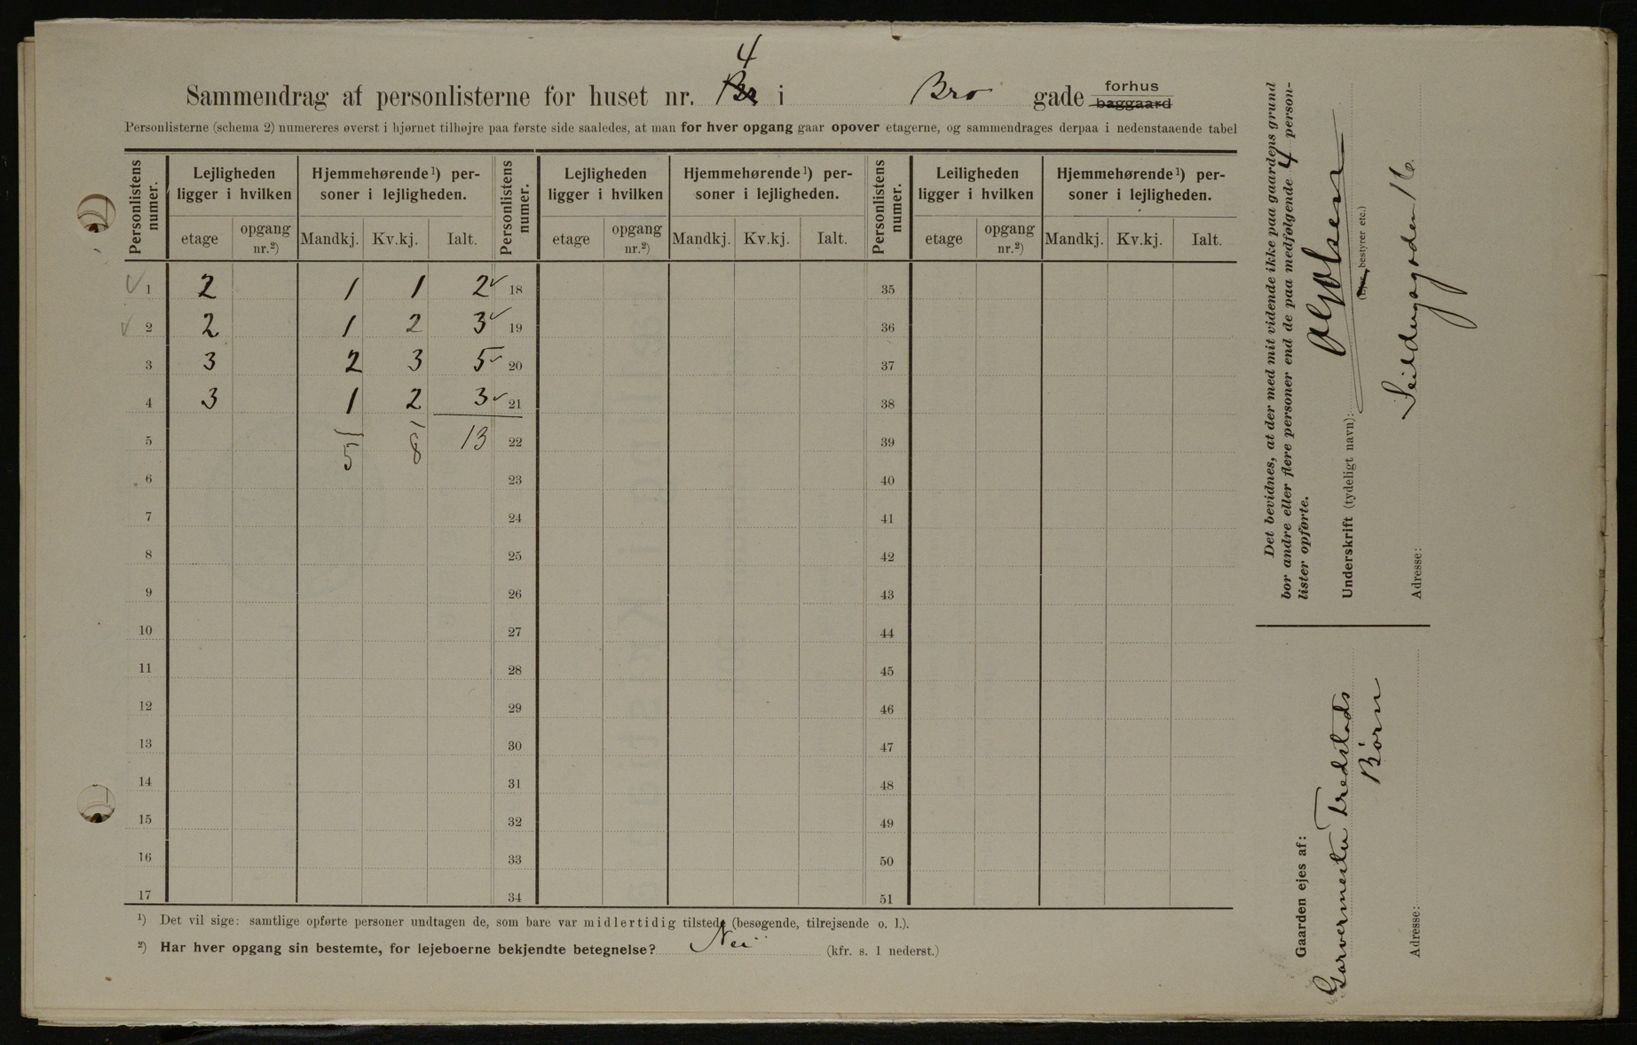 4
Sammendrag af personlisterne for huset nr. i Bro gade forhus baggaard
Personlisterne (schema 2) numereres øverst i hjørnet tilhøjre paa første side saaledes, at man for hver opgang gaar opover etagerne, og sammendrages derpaa i nedenstaaende tabel
Personlistens numer. Lejligheden ligger i hvilken Hjemmehørende¹) personer i lejligheden. Personlistens numer. Lejligheden ligger i hvilken Hjemmehørende¹) personer i lejligheden. Personlistens numer. Leiligheden ligger i hvilken Hjemmehørende¹) personer i lejligheden.
etage opgang nr.²) Mandkj. Kv.kj. Ialt. etage opgang nr.²) Mandkj. Kv.kj. Ialt. etage opgang nr.²) Mandkj. Kv.kj. Ialt.
✓ 1 2 1 1 2 ✓ 18 35
✓ 2 2 1 2 3 ✓ 19 36
3 3 2 3 5 ✓ 20 37
4 3 1 2 3 ✓ 21 38
5 5 8 13 22 39
6 23 40
7 24 41
8 25 42
9 26 43
10 27 44
11 28 45
12 29 46
13 30 47
14 31 48
15 32 49
16 33 50
17 34 51
¹) Det vil sige: samtlige opførte personer undtagen de, som bare var midlertidig tilstede (besøgende, tilrejsende o. l.).
²) Har hver opgang sin bestemte, for lejeboerne bekjendte betegnelse? Nei (kfr. s. 1 nederst.)
Det bevidnes, at der med mit vidende ikke paa gaardens grund
bor andre eller flere personer end de paa medfølgende 4 person-
lister opførte.
Underskrift (tydeligt navn): Olsen
bestyrer etc.)
Adresse: 16
Gaarden ejes af:
Garvermester Tredstads
Børn
Adresse: